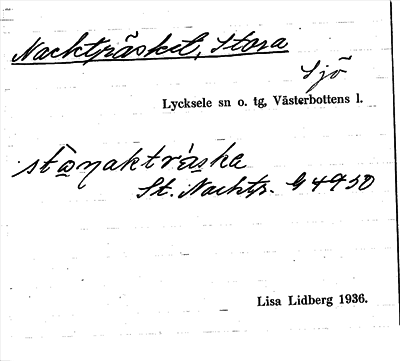 Nacktjräsket, Stora
Sjö
Lycksele sn o. tg, Västerbottens l.
St. Nacktr. G 4950
Lisa Lidberg 1936.